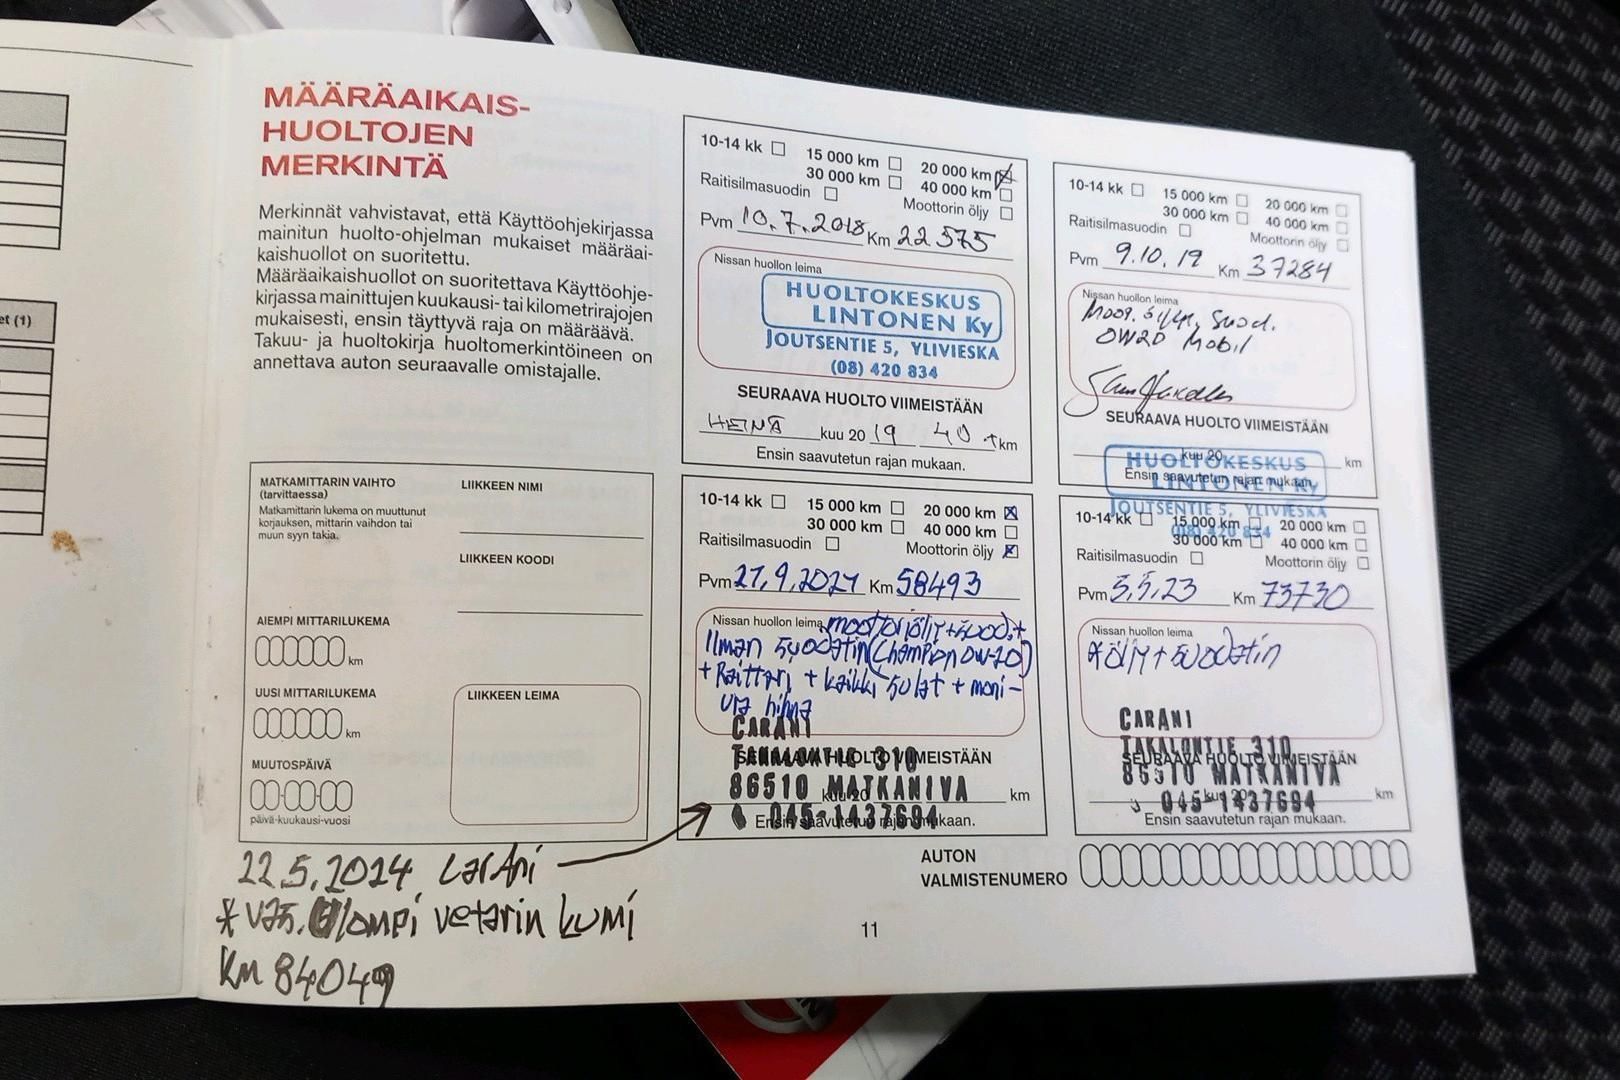 et (1)
MÄÄRÄAIKAIS-
HUOLTOJEN
MERKINTÄ
Merkinnät vahvistavat, että Käyttöohjekirjassa
mainitun huolto-ohjelman mukaiset määräai-
kaishuollot on suoritettu.
Määräaikaishuollot on suoritettava Käyttöohje-
kirjassa mainittujen kuukausi- tai kilometrirajojen
mukaisesti, ensin täyttyvä raja on määräävä.
Takuu- ja huoltokirja huoltomerkintöineen on
annettava auton seuraavalle omistajalle.
MATKAMITTARIN VAIHTO
(tarvittaessa)
Matkamittarin lukema on muuttunut
korjauksen, mittarin vaihdon tai
muun syyn takia.
LIIKKEEN NIMI
LIIKKEEN KOODI
AIEMPI MITTARILUKEMA
km
UUSI MITTARILUKEMA
km
MUUTOSPÄIVÄ
päivä-kuukausi-vuosi
LIIKKEEN LEIMA
10-14 kk 15 000 km 20 000 km
30 000 km 40 000 km
Raitisilmasuodin Moottorin öljy
Pvm 10.7.2018 Km 22575
Nissan huollon leima
HUOLTOKESKUS
LINTONEN Ky
JOUTSENTIE 5, YLIVIESKA
(08) 420 834
SEURAAVA HUOLTO VIIMEISTÄÄN
HEINÄ kuu 20 19 40 t km
Ensin saavutetun rajan mukaan.
10-14 kk 15 000 km 20 000 km
30 000 km 40 000 km
Raitisilmasuodin Moottorin öljy
Pvm 9.10.19 Km 37284
Nissan huollon leima
Moot. öljy, Suod.
0W20 Mobil
SEURAAVA HUOLTO VIIMEISTÄÄN
kuu 20 km
Ensin saavutetun rajan mukaan.
HUOLTOKESKUS
LINTONEN Ky
JOUTSENTIE 5, YLIVIESKA
(08) 420 834
10-14 kk 15 000 km 20 000 km
30 000 km 40 000 km
Raitisilmasuodin Moottorin öljy
Pvm 27.9.2021 Km 58493
Nissan huollon leima moottoriöljy+suod.+
Ilman suodatin (Champion 0W-20)
+ Raittari + kaikki sulat + moni-
ura hihna
CARANI
TAKALONTIE 310
86510 MATKANIVA
045-1437694
SEURAAVA HUOLTO VIIMEISTÄÄN
kuu 20 km
Ensin saavutetun rajan mukaan.
10-14 kk 15 000 km 20 000 km
30 000 km 40 000 km
Raitisilmasuodin Moottorin öljy
Pvm 5.5.23 Km 73730
Nissan huollon leima
*öljy + suodatin
CARANI
TAKALONTIE 310
86510 MATKANIVA
045-1437694
SEURAAVA HUOLTO VIIMEISTÄÄN
kuu 20 km
Ensin saavutetun rajan mukaan.
AUTON
VALMISTENUMERO
22.5.2024 carAni
* vas. ulompi vetarin kumi
Km 84049
11